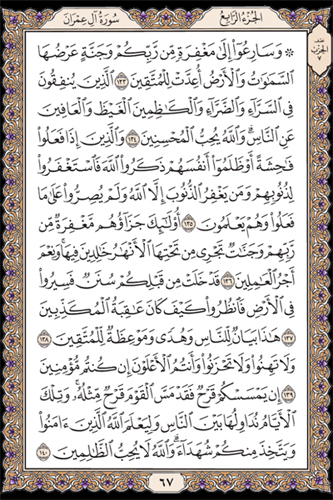 سُورَةُ آلِ عِمْرَان الجُزْءُ الرَّابِعُ
نصف
الحزب
٧
۞ وَسَارِعُوٓاْ إِلَىٰ مَغْفِرَةٍ مِّن رَّبِّكُمْ وَجَنَّةٍ عَرْضُهَا
ٱلسَّمَٰوَٰتُ وَٱلْأَرْضُ أُعِدَّتْ لِلْمُتَّقِينَ ١٣٣ ٱلَّذِينَ يُنفِقُونَ
فِي ٱلسَّرَّآءِ وَٱلضَّرَّآءِ وَٱلْكَٰظِمِينَ ٱلْغَيْظَ وَٱلْعَافِينَ
عَنِ ٱلنَّاسِۗ وَٱللَّهُ يُحِبُّ ٱلْمُحْسِنِينَ ١٣٤ وَٱلَّذِينَ إِذَا فَعَلُواْ
فَٰحِشَةً أَوْ ظَلَمُوٓاْ أَنفُسَهُمْ ذَكَرُواْ ٱللَّهَ فَٱسْتَغْفَرُواْ
لِذُنُوبِهِمْ وَمَن يَغْفِرُ ٱلذُّنُوبَ إِلَّا ٱللَّهُ وَلَمْ يُصِرُّواْ عَلَىٰ مَا
فَعَلُواْ وَهُمْ يَعْلَمُونَ ١٣٥ أُوْلَٰٓئِكَ جَزَآؤُهُم مَّغْفِرَةٌ مِّن
رَّبِّهِمْ وَجَنَّٰتٌ تَجْرِي مِن تَحْتِهَا ٱلْأَنْهَٰرُ خَٰلِدِينَ فِيهَاۚ وَنِعْمَ
أَجْرُ ٱلْعَٰمِلِينَ ١٣٦ قَدْ خَلَتْ مِن قَبْلِكُمْ سُنَنٌ فَسِيرُواْ
فِي ٱلْأَرْضِ فَٱنظُرُواْ كَيْفَ كَانَ عَٰقِبَةُ ٱلْمُكَذِّبِينَ
١٣٧ هَٰذَا بَيَانٌ لِّلنَّاسِ وَهُدًى وَمَوْعِظَةٌ لِّلْمُتَّقِينَ ١٣٨
وَلَا تَهِنُواْ وَلَا تَحْزَنُواْ وَأَنتُمُ ٱلْأَعْلَوْنَ إِن كُنتُم مُّؤْمِنِينَ
١٣٩ إِن يَمْسَسْكُمْ قَرْحٌ فَقَدْ مَسَّ ٱلْقَوْمَ قَرْحٌ مِّثْلُهُۥۚ وَتِلْكَ
ٱلْأَيَّامُ نُدَاوِلُهَا بَيْنَ ٱلنَّاسِ وَلِيَعْلَمَ ٱللَّهُ ٱلَّذِينَ ءَامَنُواْ
وَيَتَّخِذَ مِنكُمْ شُهَدَآءَۗ وَٱللَّهُ لَا يُحِبُّ ٱلظَّٰلِمِينَ ١٤٠
٦٧